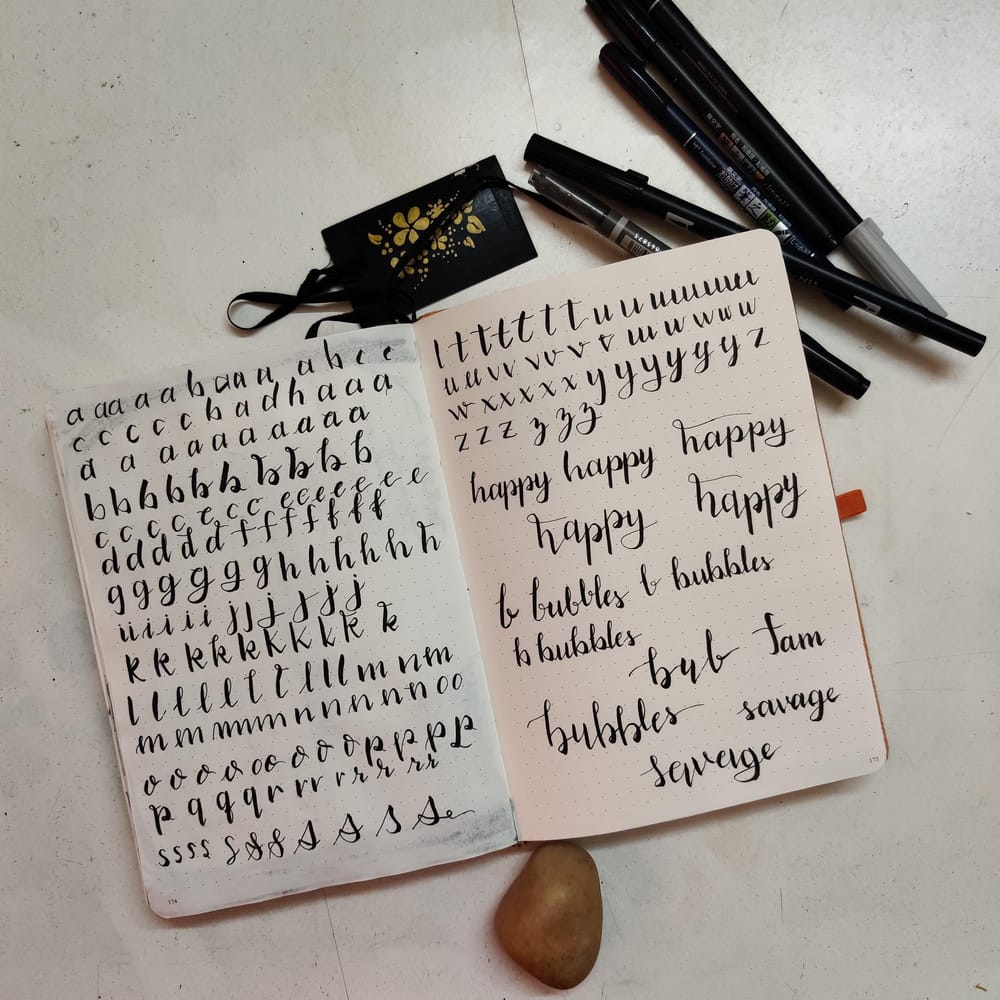 a aa a a b a a a a a b c c
c c c c c b a d h a a a
a a a a a a a a a
b b b b b b b b b b b
c c c c c c c e e e e e e e
d d d d d f f f f f f f
g g g g g g h h h h h h
i i i i i i j j j j j j
k k k k k k k k k k
l l l l l l l l l l m n m
m m m m m n n n n n n o o
o o o o o o o o o p p p p
p q q q r r r r r r r r
s s s s s s s s s s s
174
l t t t t t t u u u u u u u u u
u u v v v v v v w w w w w
w x x x x x y y y y y y z
z z z z z z
happy happy happy
happy happy
b bubbles b bubbles
b bubbles
bub Jam
bubbles savage
savage
175